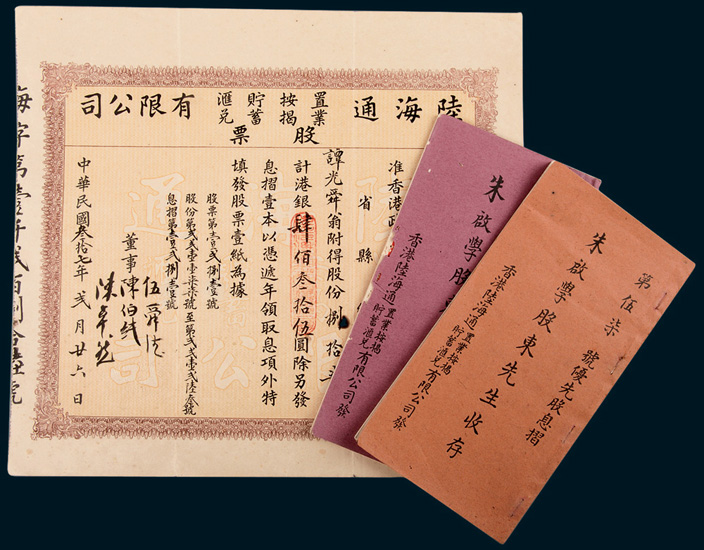 陸海通置業按揭貯蓄滙兌有限公司
股票
准香港政
省縣
譚光舜翁附得股份捌拾三
計港銀肆佰叁拾伍圓除另發
息摺壹本以憑遞年領取息項外特
填發股票壹紙為據
股票第壹貳捌壹號
股份第貳貳壹壹柒柒號至第貳貳壹貳陸叁號
息摺第壹貳捌壹號
董事
伍舜德
陳伯
中華民國叁拾七年貳月廿六日
海字第壹仟貳百捌
朱啟學股
香港陸海通置業按揭貯蓄滙兌有限公司發
第伍柒號優先股息摺
朱啟學股東先生收存
香港陸海通置業按揭貯蓄滙兌有限公司發